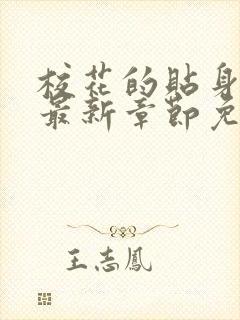 校花的貼身
最新章節免
王志鳳